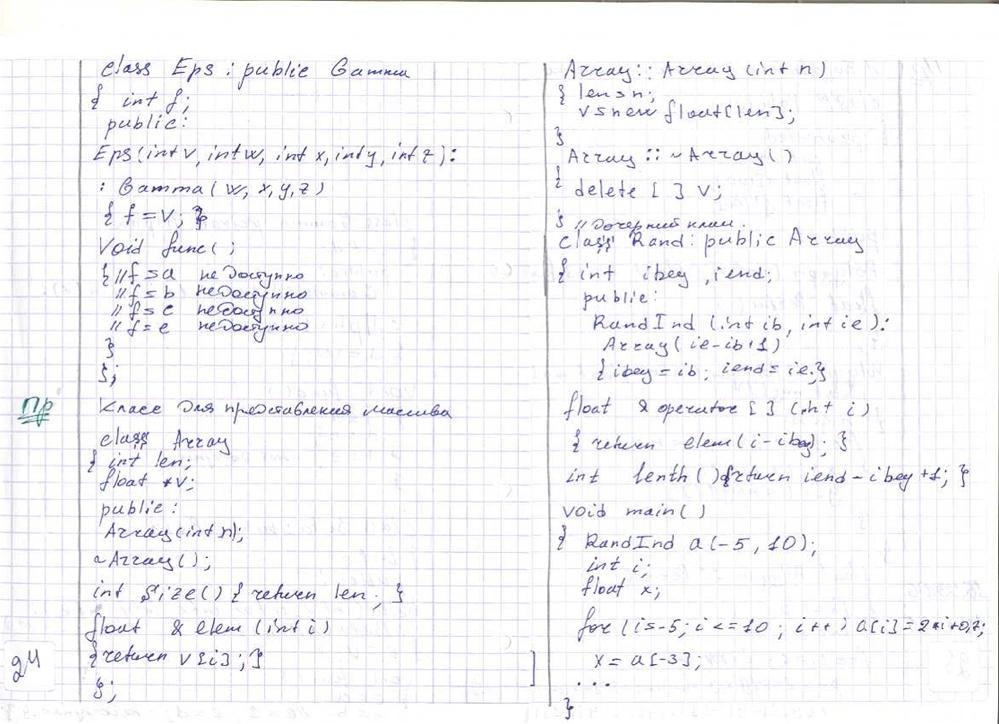 class Eps : public Gamma
{ int f;
public:
Eps(int v, int w, int x, int y, int z):
: Gamma( w, x, y, z)
{ f = v; }
void func( ;
{ // f = a не доступно
// f = b не доступно
// f = c не доступно
// f = e не доступно
}
};
Пр Класс для представления массива
class Array
{ int len;
float *v;
public:
Array(int n);
~Array();
int Size() { return len; }
float & elem (int i)
{return v[i]; }
};
24
Array:: Array (int n)
{ len = n;
v = new float[len];
}
Array :: ~Array()
{ delete [ ] v;
} // Дочерний класс.
class Rand: public Array
{ int ibeg, iend;
public:
RandInd (int ib, int ie):
Array( ie-ib+1)
{ ibeg = ib; iend = ie;}
float & operator [ ] (int i)
{ return elem(i-ibeg); }
int lenth( ){return iend-ibeg+1; }
void main()
{ RandInd a(-5, 10);
int i;
float x;
for (i=-5; i<=10 ; i++) a[i]=2*i+0,7;
x = a[-3];
...
}